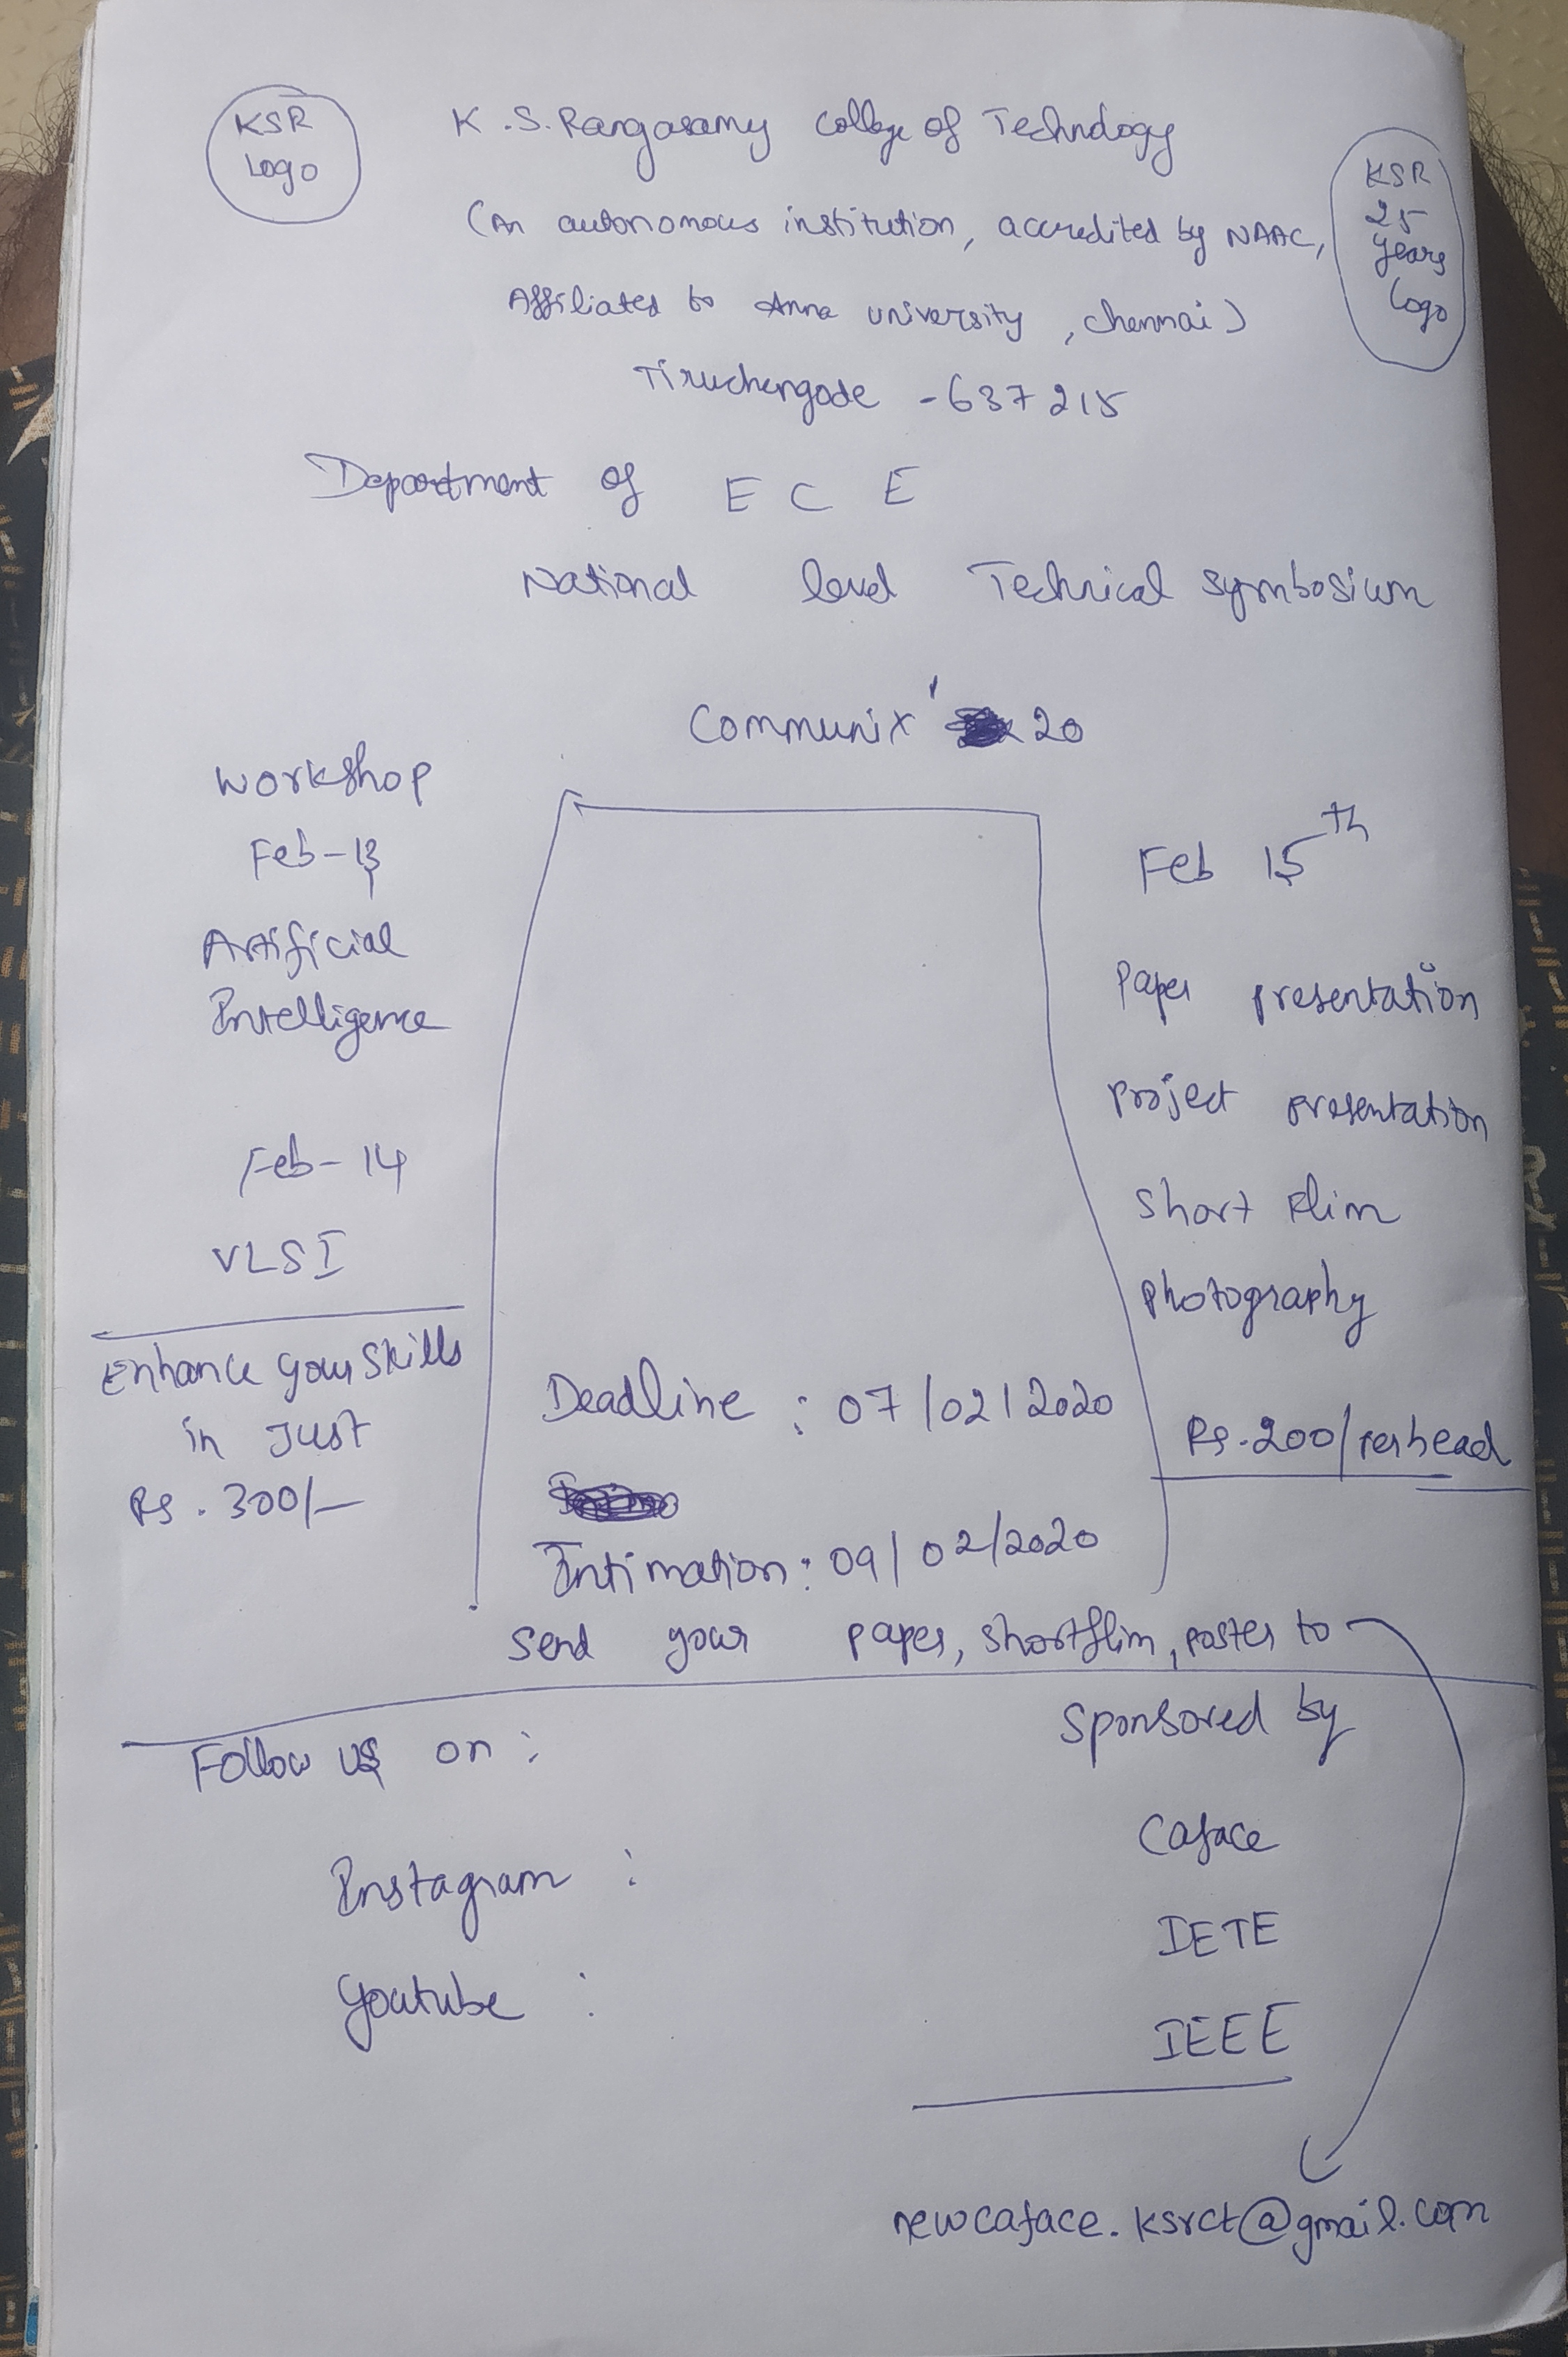 KSR
Logo
K.S. Rangasamy College of Technology
(An autonomous institution, accredited by NAAC,
Affiliated to Anna university, chennai)
Tiruchengode - 637 215
KSR
25
years
Logo
Department of E C E
National level Technical symbosium
Communix' 20
Workshop
Feb-13
Artificial
Intelligence
Feb-14
VLSI
Enhance your Skills
in Just
Rs. 300/-
Deadline : 07/02/2020
Intimation : 09/02/2020
Feb 15th
Paper presentation
Project presentation
Short Flim
Photography
Rs.200/perhead
Send your paper, shortflim, poster to
Follow us on :
Instagram :
Youtube :
Sponsored by
Caface
IETE
IEEE
newcaface.ksrct@gmail.com